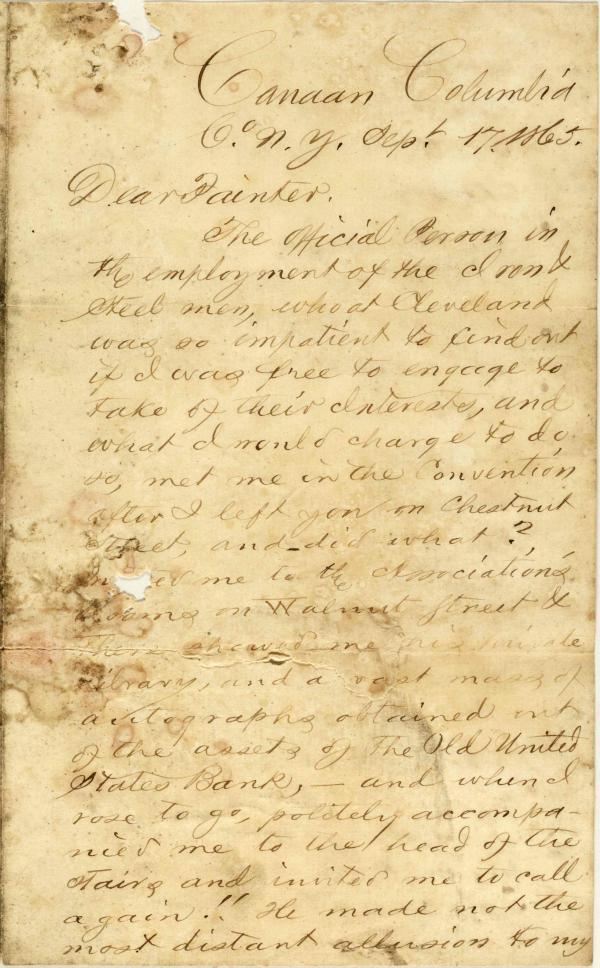 Canaan Columbia
Co. N. Y. Sept. 17, 1865.
Dear Painter.
The official Person in
the employment of the Iron &
Steel men, who at Cleveland
was so impatient to find out
if I was free to engage to
take of their Interests, and
what I would charge to do
so, met me in the Convention
after I left you on Chestnut
Street, and did what?
me to the Association's
rooms on Walnut Street &
there showed me his private
library, and a vast mass of
autographs obtained out
of the assets of The Old United
States Bank, — and when I
rose to go, politely accompa-
nied me to the head of the
stairs and invited me to call
again!! He made not the
most distant allusion to my